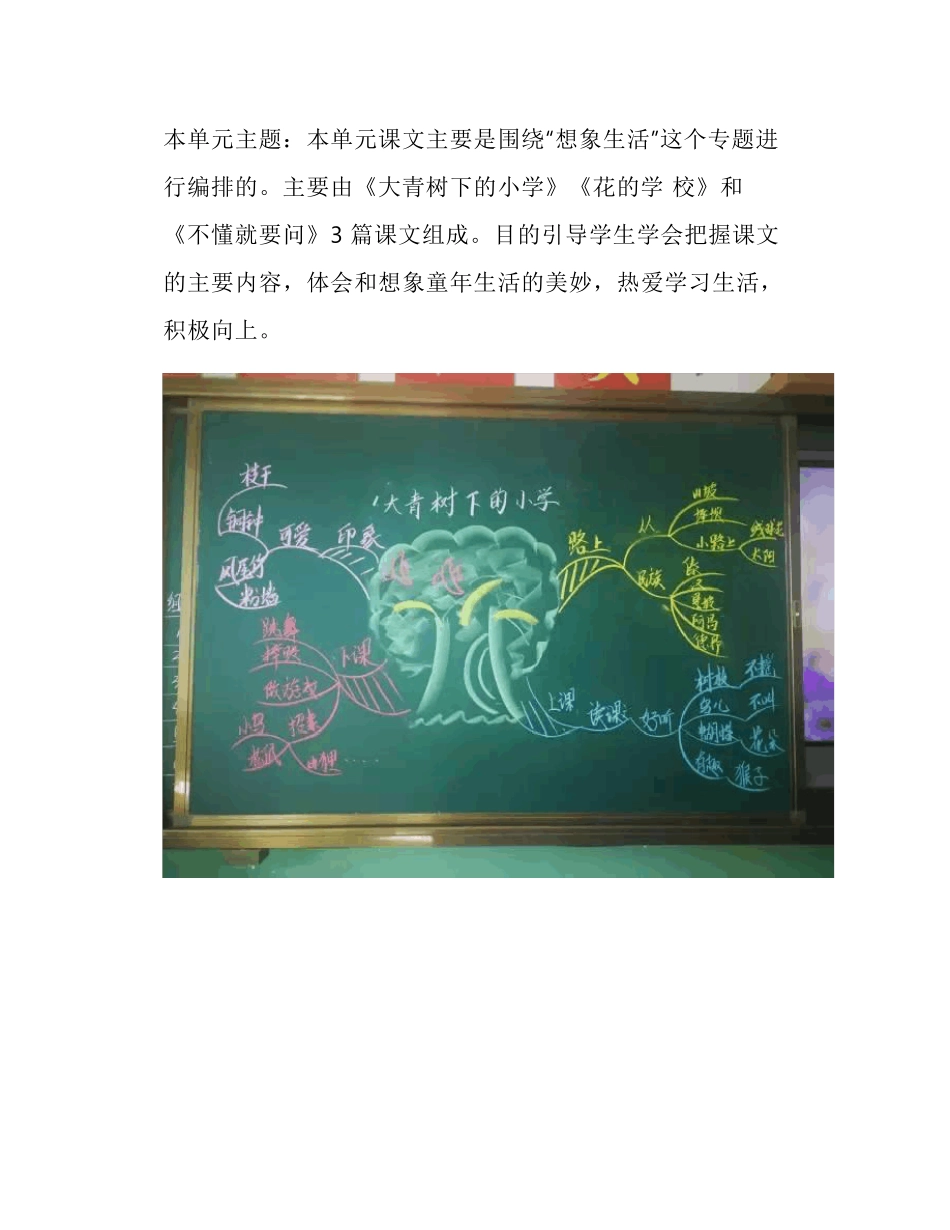 本单元主题：本单元课文主要是围绕“想象生活”这个专题进
行编排的。主要由《大青树下的小学》《花的学 校》和
《不懂就要问》3 篇课文组成。目的引导学生学会把握课文
的主要内容，体会和想象童年生活的美妙，热爱学习生活，
积极向上。
大青树下的小学
枝干
铜钟
凤尾竹
粉墙
可爱
印象
跳舞
摔跤
做游戏
小鸟
招来
松鼠
山狸
下课
路上
从
山坡
坪坝
小路上
绒球花
太阳
民族
傣
景颇
阿昌
德昂
上课
读课文
好听
树枝
不摇
鸟儿
不叫
蝴蝶
花朵
猴子
组